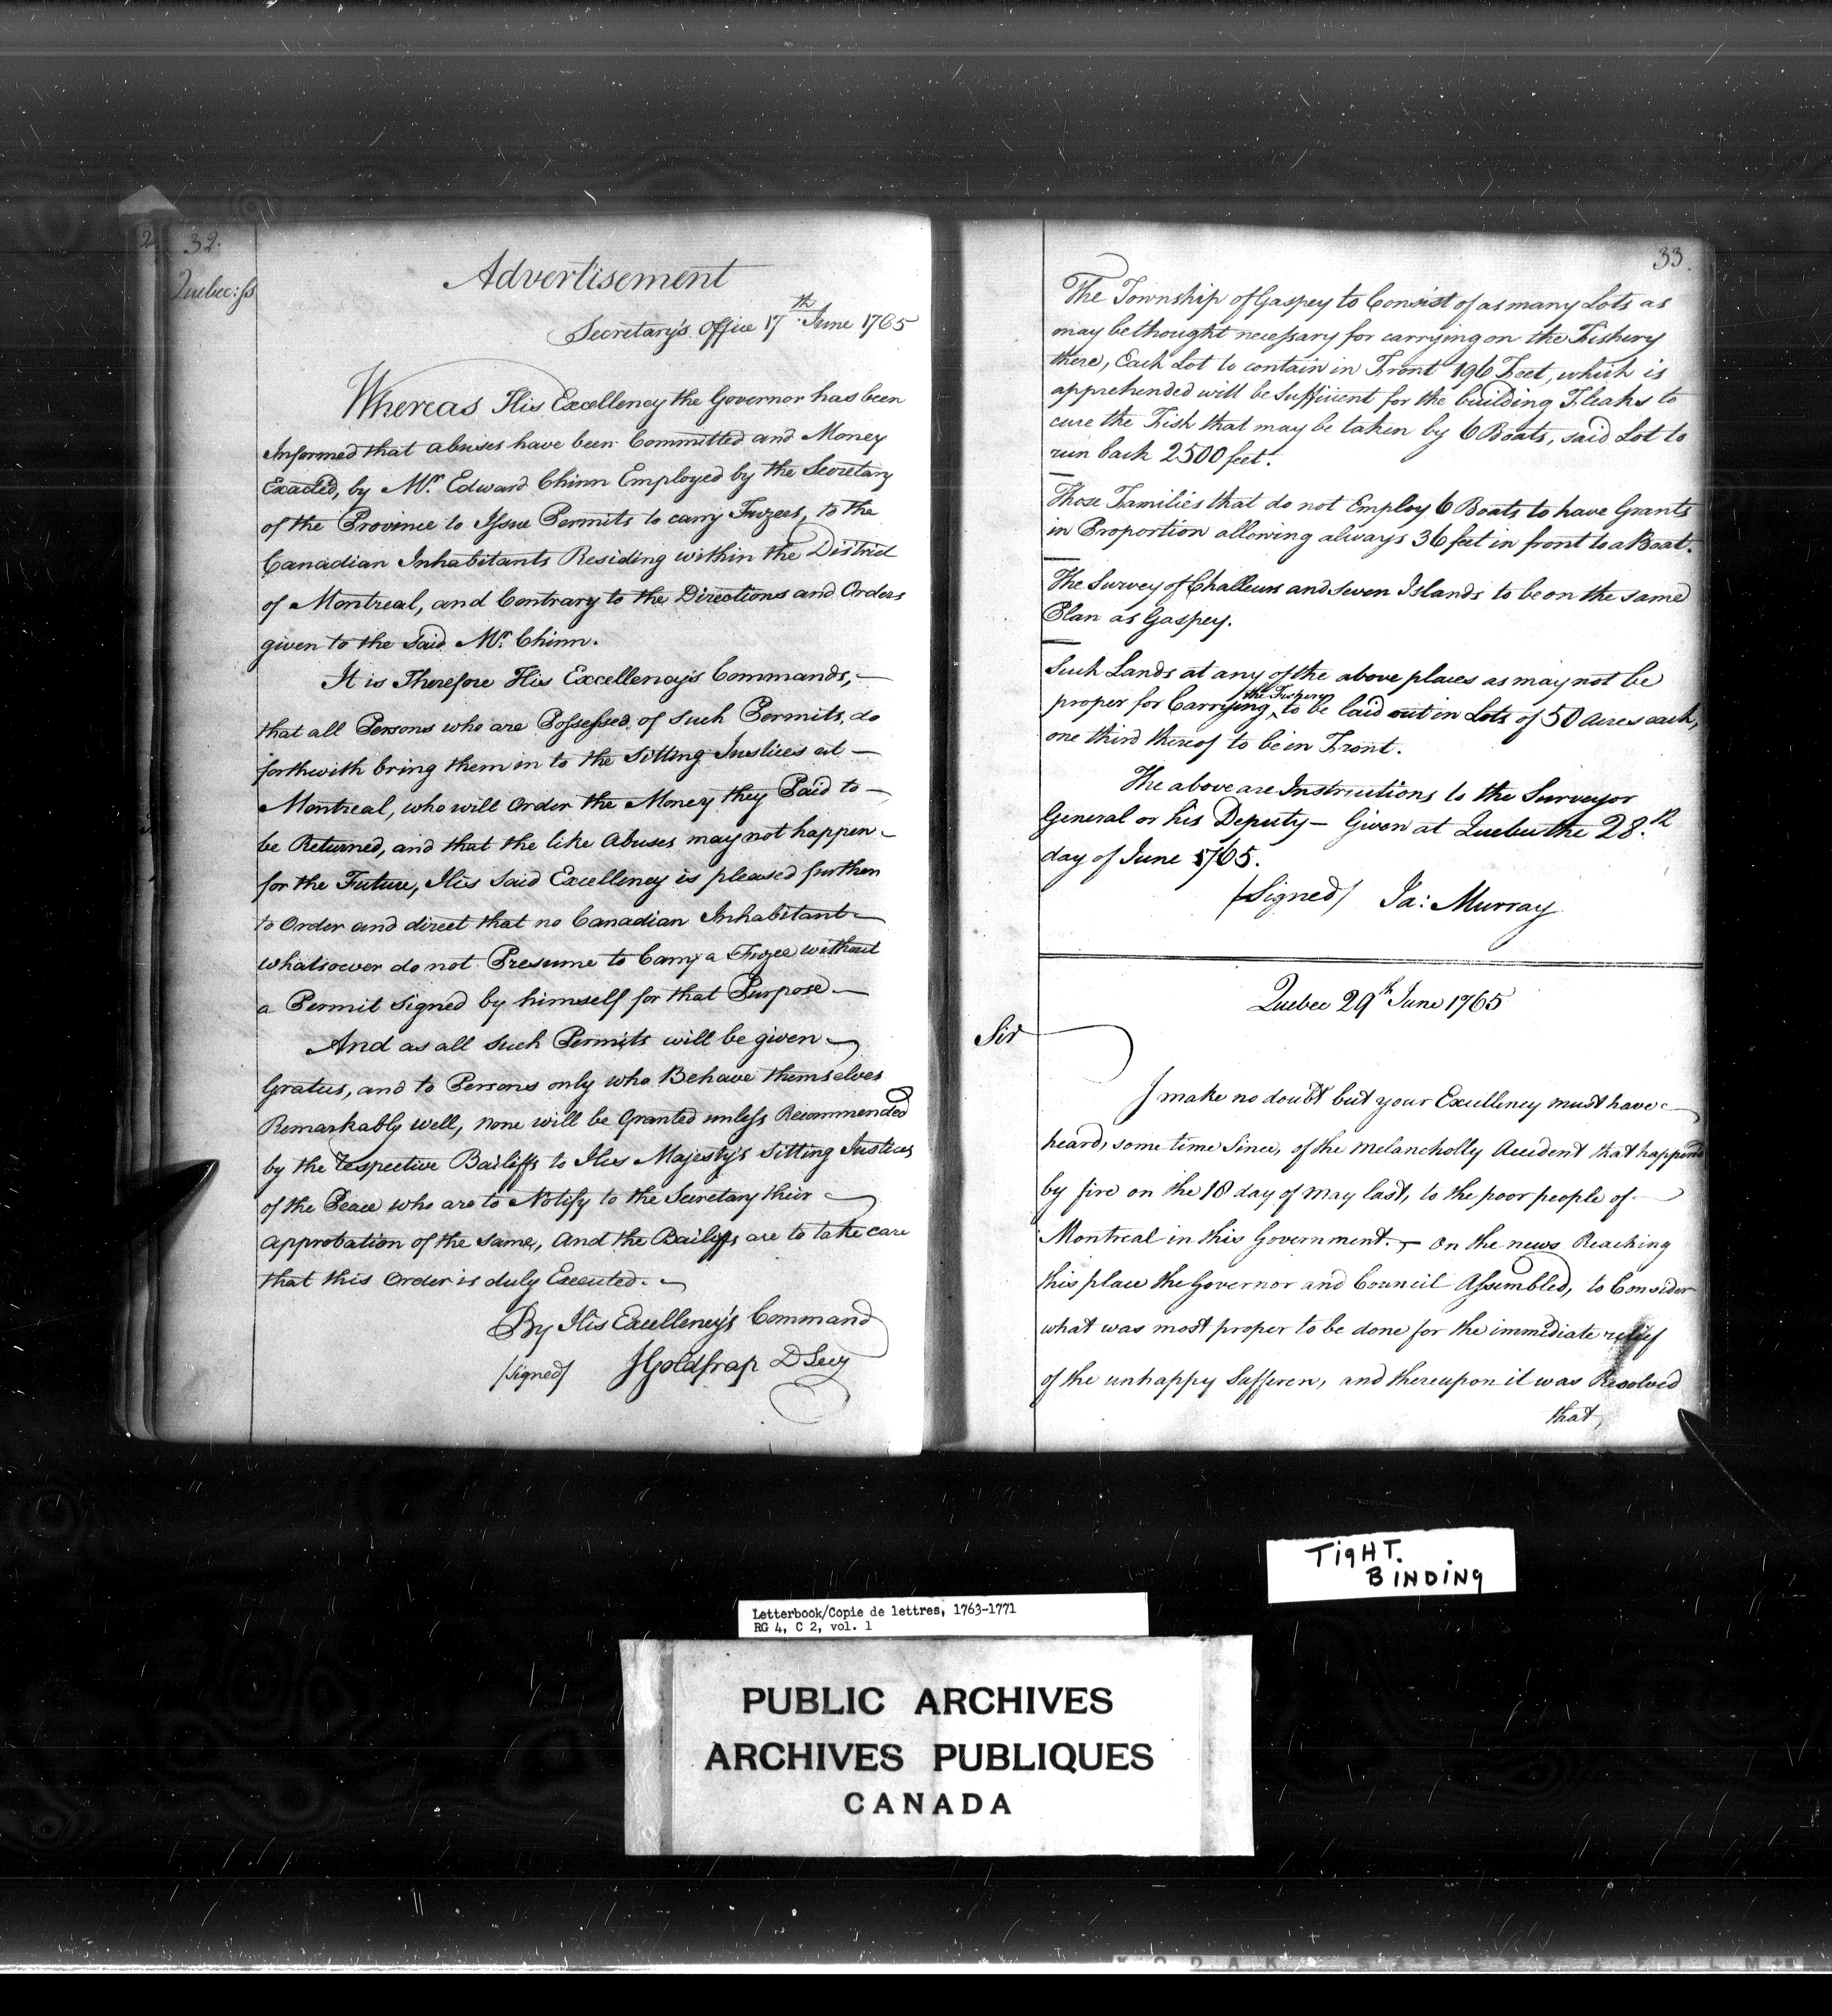 32.
Quebec: ss
Advertisement
Secretary's Office 17th June 1765
Whereas His Excellency the Governor has been
Informed that abuses have been Committed and Money
Exacted, by Mr. Edward Chinn Employed by the Secretary
of the Province to Issue Permits to carry Fuzees, to the
Canadian Inhabitants Residing within the District
of Montreal, and Contrary to the Directions and Orders
given to the said Mr. Chinn.
It is Therefore His Excellency's Commands,
that all Persons who are Possessed of such Permits, do
forthwith bring them in to the Sitting Justices at
Montreal, who will Order the Money they Paid to
be Returned, and that the like Abuses may not happen
for the Future, His said Excellency is pleased further
to Order and direct that no Canadian Inhabitant
whatsoever do not Presume to Carry a Fuzee without
a Permit signed by himself for that Purpose
And as all such Permits will be given
Gratus, and to Persons only who Behave themselves
Remarkably well, none will be Granted unless Recommended
by the respective Bailiffs to His Majesty's Sitting Justices
of the Peace who are to Notify to the Secretary their
approbation of the same, And the Bailiffs are to take care
that this Order is duly Executed.
By His Excellency's Command
/signed/ JGoldfrap D Secy
33.
The Township of Gaspey to Consist of as many Lots as
may be thought necessary for carrying on the Fishery
there, Each Lot to contain in Front 196 Feet, which is
apprehended will be Sufficient for the building Fleaks to
cure the Fish that may be taken by 6 Boats, said Lot to
run back 2500 feet.
Those Families that do not Employ 6 Boats to have Grants
in Proportion allowing always 36 feet in front to a Boat.
The Survey of Challeurs and Seven Islands to be on the same
Plan as Gaspey.
Such Lands at any of the above places as may not be
proper for Carrying the Fishery to be laid out in Lots of 50 Acres each,
one third thereof to be in Front.
The above are Instructions to the Surveyor
General or his Deputy — Given at Quebec the 28.th
day of June 1765.
/Signed/ Ja: Murray
Quebec 29th June 1765
Sir
I make no doubt but your Excellency must have
heard, some time Since, of the Melancholly Accident that happend
by fire on the 18 day of May last, to the poor people of
Montreal in this Government. — On the news Reaching
this place the Governor and Council Assembled, to Consider
what was most proper to be done for the immediate relief
of the unhappy Sufferers, and thereupon it was Resolved
that,
TigHT.
BINDINg
Letterbook/Copie de lettres, 1763-1771
RG 4, C 2, vol. 1
PUBLIC ARCHIVES
ARCHIVES PUBLIQUES
CANADA